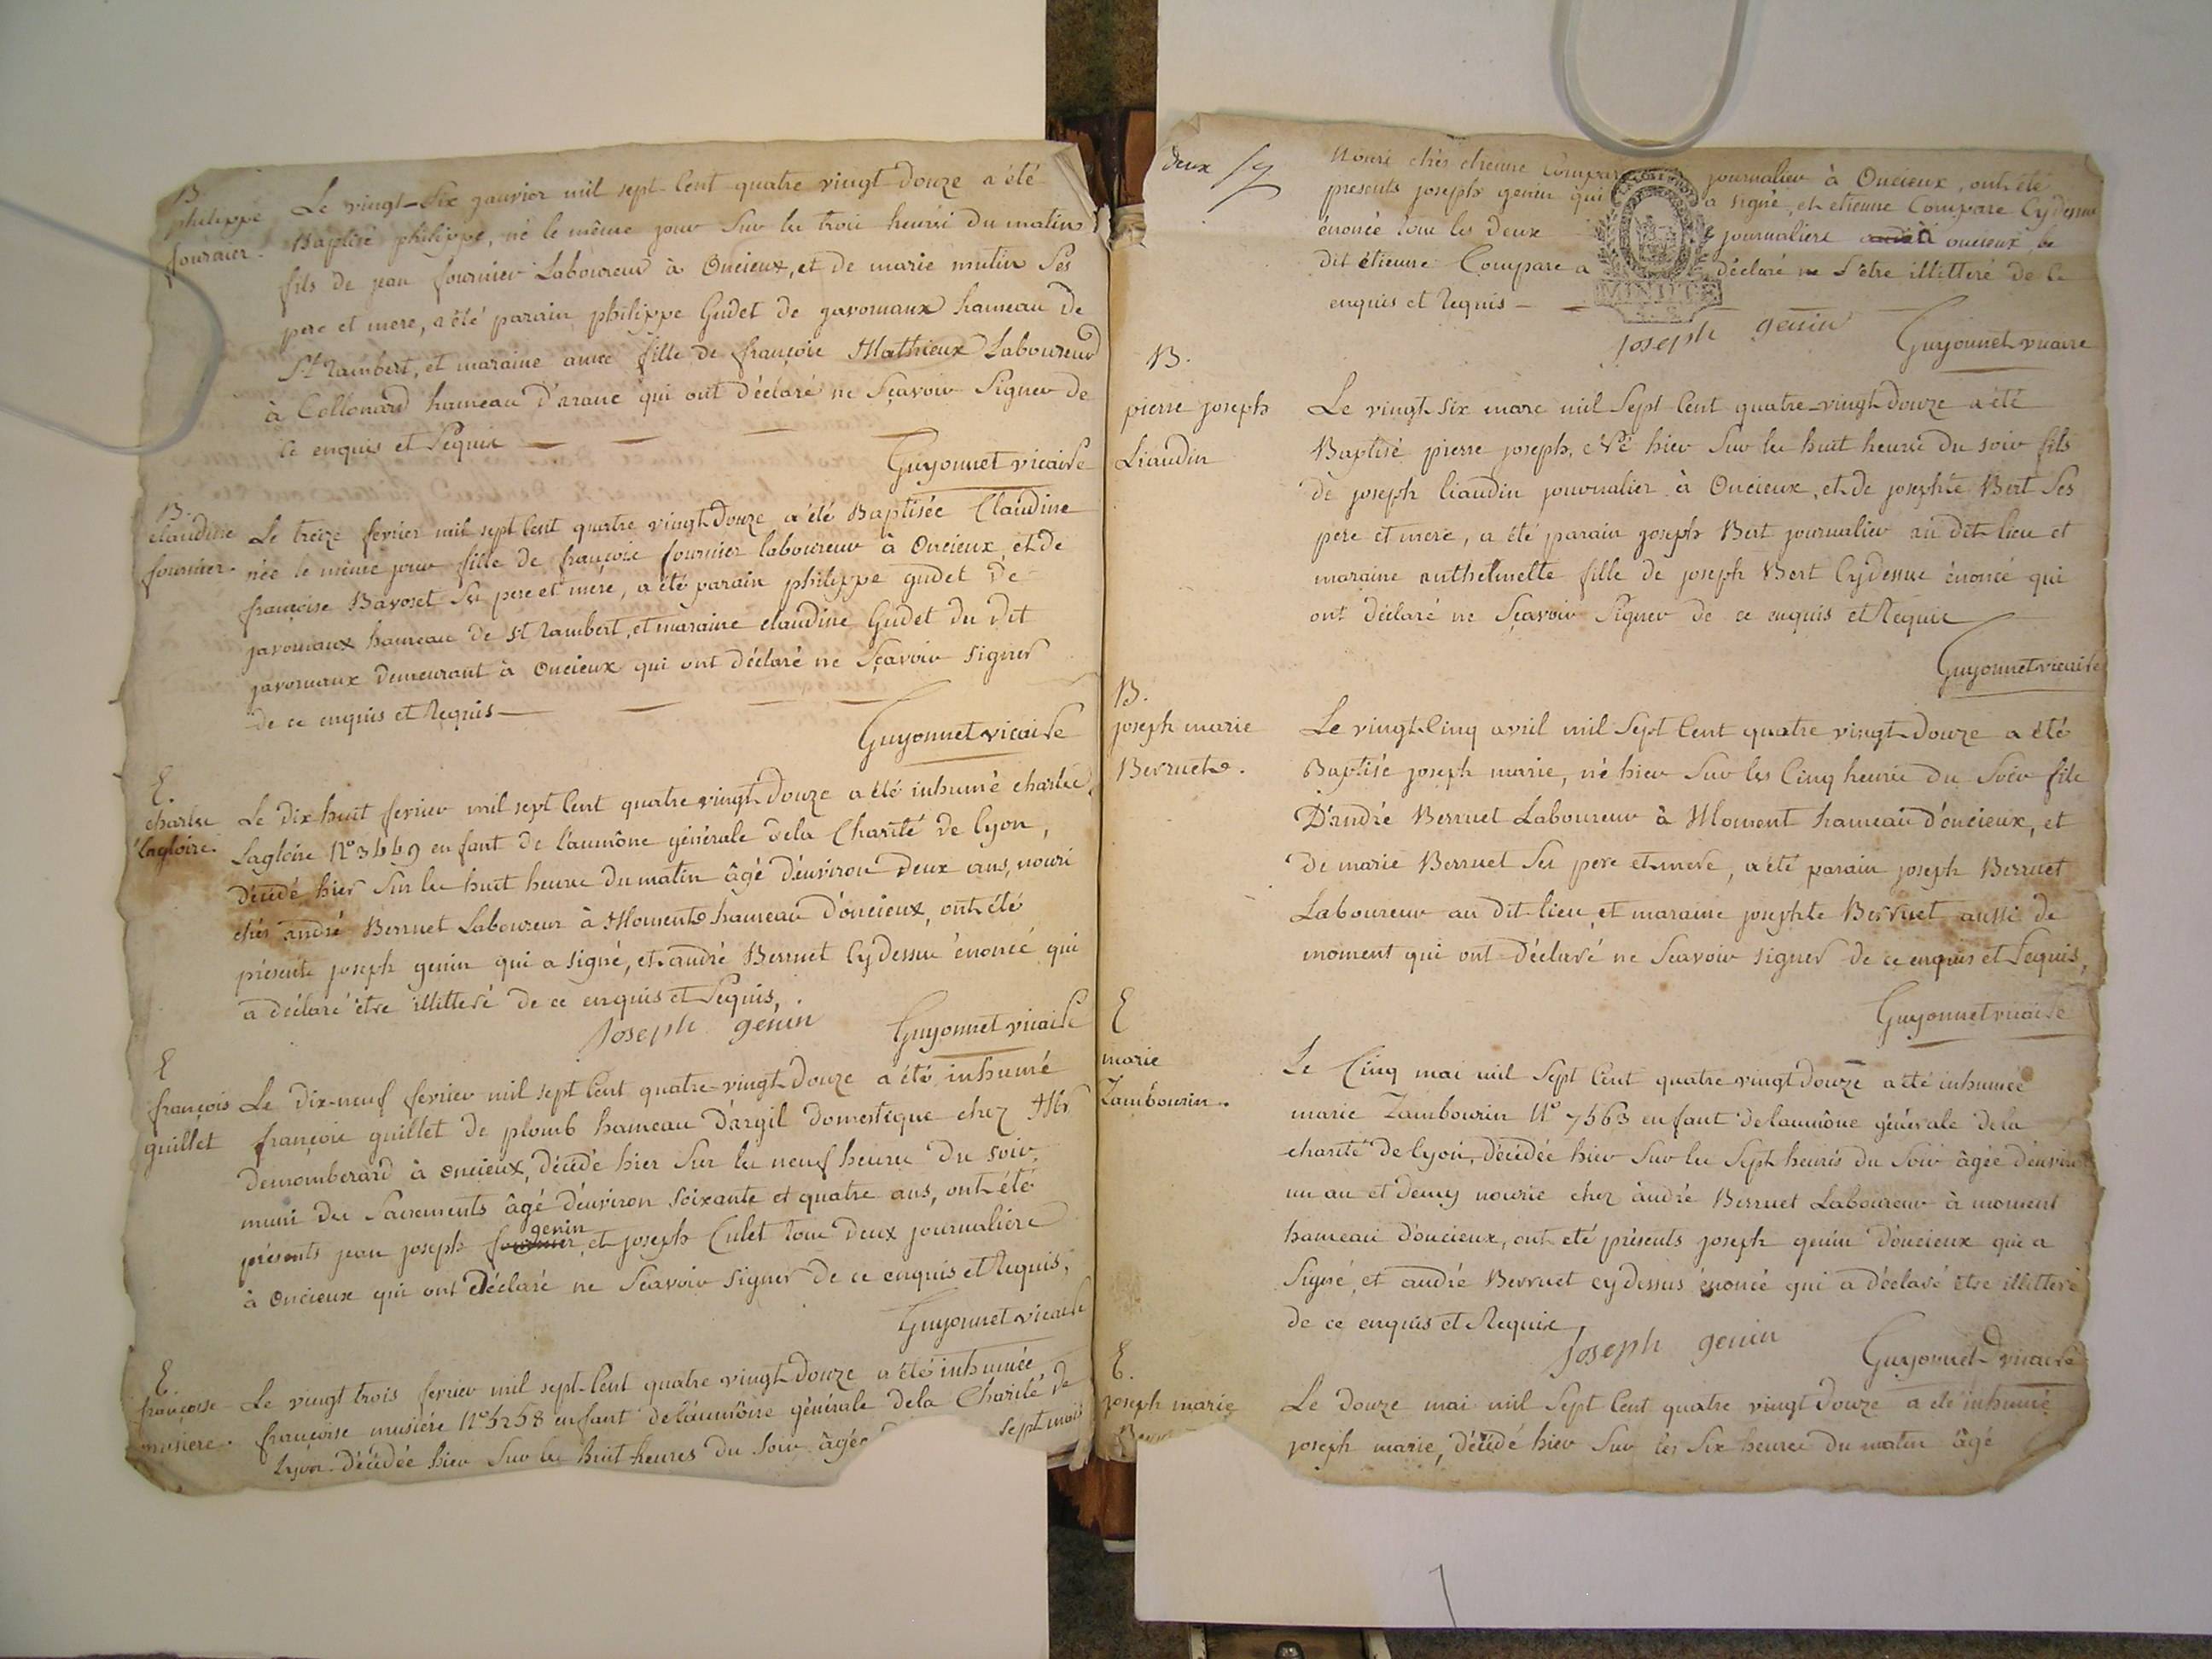 B
philippe
fournier.
Le vingt-six janvier mil sept Cent quatre vingt douze a été
Baptisé philippe, né le même jour Sur les trois heures du matin
fils de jean fournier Laboureur à Oncieux, et de marie mutin Ses
pere et mere, a été parain philippe Gudet de javornaux hameau de
St Rambert, et maraine anne fille de françois Mathieux Laboureur
à Collonard hameau d'arane qui ont déclaré ne Sçavoir Signer de
ce enquis et Requis
Guyonnet vicaire
B.
claudine
fournier.
Le treize fevrier mil sept Cent quatre vingt Douze a été Baptisée Claudine
née le même jour fille de françois fournier laboureur à Oncieux, et de
françoise Bavoset Ses pere et mere, a été parain philippe gudet de
javornaux hameau de St Rambert, et maraine claudine Gudet du dit
javornaux demeurant à Oncieux qui ont déclaré ne Sçavoir signer
de ce enquis et Requis
Guyonnet vicaire
E.
charles
lagloire.
Le dix huit fevrier mil sept Cent quatre vingt Douze a été inhumé charles
Lagloire N° 3449 enfant de l'aumône générale dela Charité de lyon,
décédé hier Sur les huit heures du matin âgé d'environ deux ans, nouri
chés andré Berruet Laboureur à Moment hameau d'oncieux, ont été
présents joseph genin qui a signé, et andré Berruet Cydessus énoncé qui
a déclaré être illitteré de ce enquis et Requis,
Joseph genin Guyonnet vicaire
E
françois
guillet
Le dix-neuf fevrier mil sept Cent quatre-vingt Douze a été inhumé
françois guillet de plomb hameau d'argil domestique chez Mr
demomberard à oncieux, décédé hier Sur les neuf heures du soir,
muni des Sacrements âgé d'environ soixante et quatre ans, ont été
genin
présents jean joseph fournier, et joseph Culet tous deux journaliers
à Oncieux qui ont déclaré ne Sçavoir signer de ce enquis et Requis,
Guyonnet vicaire
E.
françoise
musiere.
Le vingt trois fevrier mil sept Cent quatre vingt Douze a été inhumée
françoise musiére N° 5258 enfant de l'aumône générale dela Charité de
lyon décédée hier Sur les huit heures du Soir âgée sept mois
deux
Nouri chés etienne Compare journalier à Oncieux, ont été
presents joseph genin qui a signé, et etienne Compare Cydessus
énoncé tous les deux journaliers à oncieux, le
dit étienne Compare a déclaré ne S être illitteré de ce
enquis et Requis
MINUTE
Joseph genin Guyonnet vicaire
B.
pierre joseph
Liaudin
Le vingt six mars mil Sept Cent quatre-vingt Douze a été
Baptisé pierre joseph, Né hier Sur les huit heures du soir fils
de joseph liaudin journalier à Oncieux, et de josephte Bert Ses
pere et mere, a été parain joseph Bert journalier au dit lieu et
maraine anthelmette fille de joseph Bert Cydessus énoncé qui
ont déclaré ne Sçavoir Signer de ce enquis et Requis
Guyonnet vicaire
B.
joseph marie
Berruet.
Le vingt Cinq avril mil Sept Cent quatre vingt Douze a été
Baptisé joseph marie, né hier Sur les Cinq heures du Soir fils
D'andré Berruet Laboureur à Moment hameau d'oncieux, et
de marie Berruet Ses pere et mere, a été parain joseph Berruet
Laboureur au dit lieu, et maraine josephte Berruet aussi de
moment qui ont déclaré ne Sçavoir signer de ce enquis et Requis,
Guyonnet vicaire
E
marie
Zambourin.
Le Cinq mai mil Sept Cent quatre vingt Douze a été inhumée
marie Zambourin N° 7563 enfant de l'aumône générale dela
charité de lyon, décédée hier Sur les Sept heures du Soir âgée d'environ
un an et demy nourie chez andré Berruet Laboureur à moment
hameau d'oncieux, ont été présents joseph genin d'oncieux qui a
Signé, et andré Berruet cydessus énoncé qui a déclaré être illitteré
de ce enquis et Requis,
Joseph genin Guyonnet vicaire
E.
joseph marie
Le douze mai mil Sept Cent quatre vingt Douze a été inhumé
joseph marie, décédé hier Sur les Six heures du matin âgé